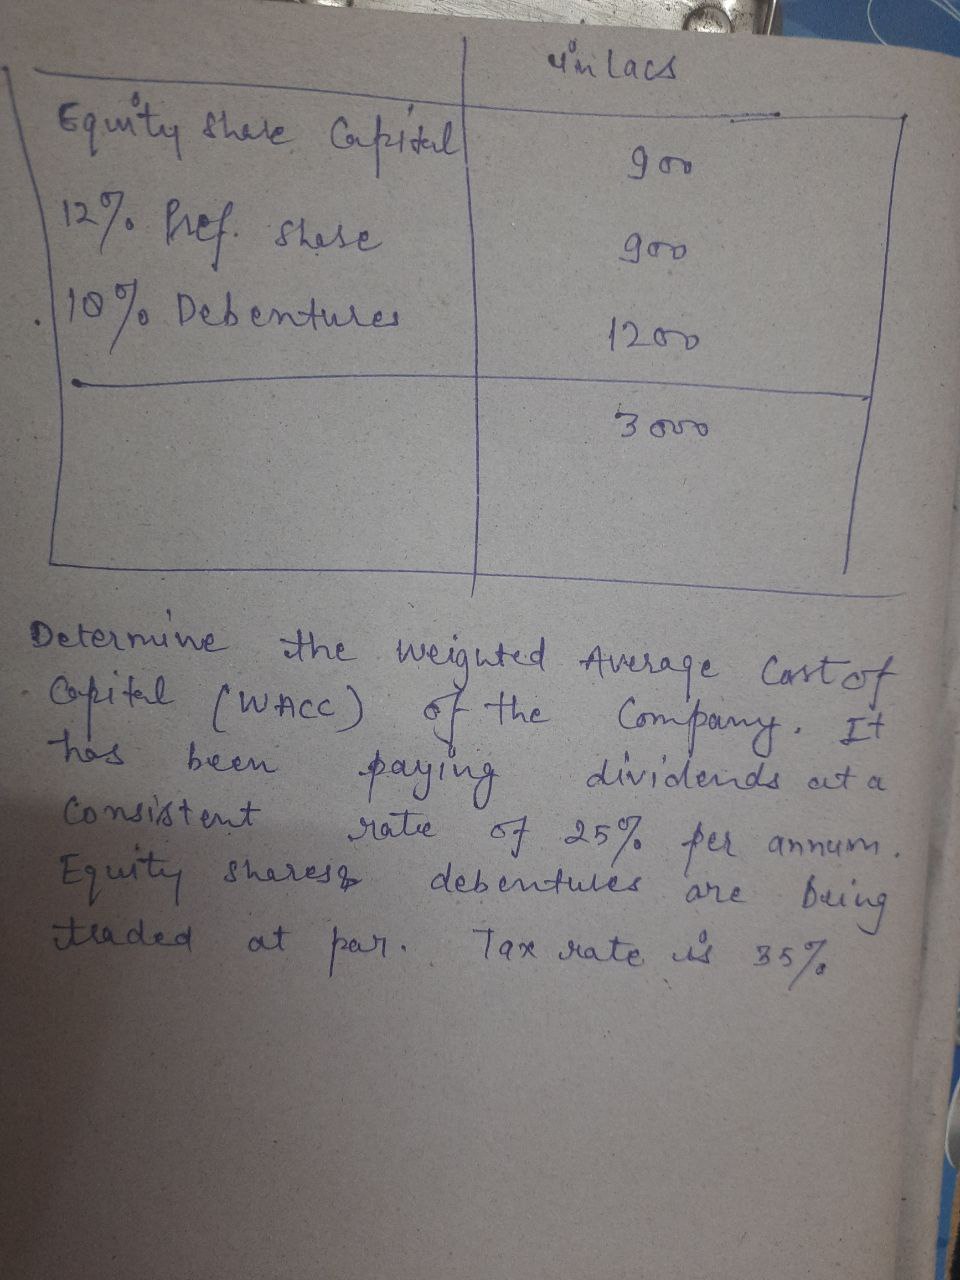 in Lacs
Equity share Capital 900
12% Pref. share 900
10% Debentures 1200
3000
Determine the Weighted Average Cost of
Capital (WACC) of the Company. It
has been paying dividends at a
Consistent rate of 25% per annum.
Equity shares & debentures are being
traded at par. Tax rate is 35%